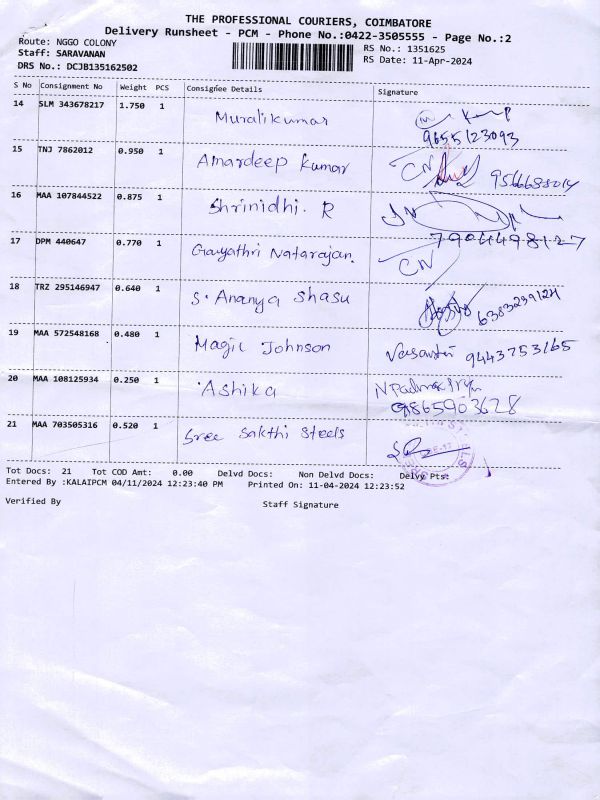 THE PROFESSIONAL COURIERS, COIMBATORE
Delivery Runsheet - PCM - Phone No.:0422-3505555 - Page No.:2
Route: NGGO COLONY
RS No.: 1351625
Staff: SARAVANAN
RS Date: 11-Apr-2024
DRS No.: DCJB135162502
S No Consignment No Weight PCS Consignee Details Signature
14 SLM 343678217 1.750 1 Muralikumar
9655123093
15 TNJ 7862012 0.950 1 Amardeep Kumar CN
16 MAA 107844522 0.875 1 Shrinidhi. R
7904498127
17 DPM 440647 0.770 1 Gayathri Natarajan. CN
18 TRZ 295146947 0.640 1 S. Ananya Shasu 6383239124
19 MAA 572548168 0.480 1 Magic Johnson Vasanthi 9443753165
20 MAA 108125934 0.250 1 Ashika
9865903628
21 MAA 703505316 0.520 1 Sree Sakthi Steels
Tot Docs: 21 Tot COD Amt: 0.00 Delvd Docs: Non Delvd Docs: Delvy Pts:
Entered By :KALAIPCM 04/11/2024 12:23:40 PM Printed On: 11-04-2024 12:23:52
Verified By Staff Signature